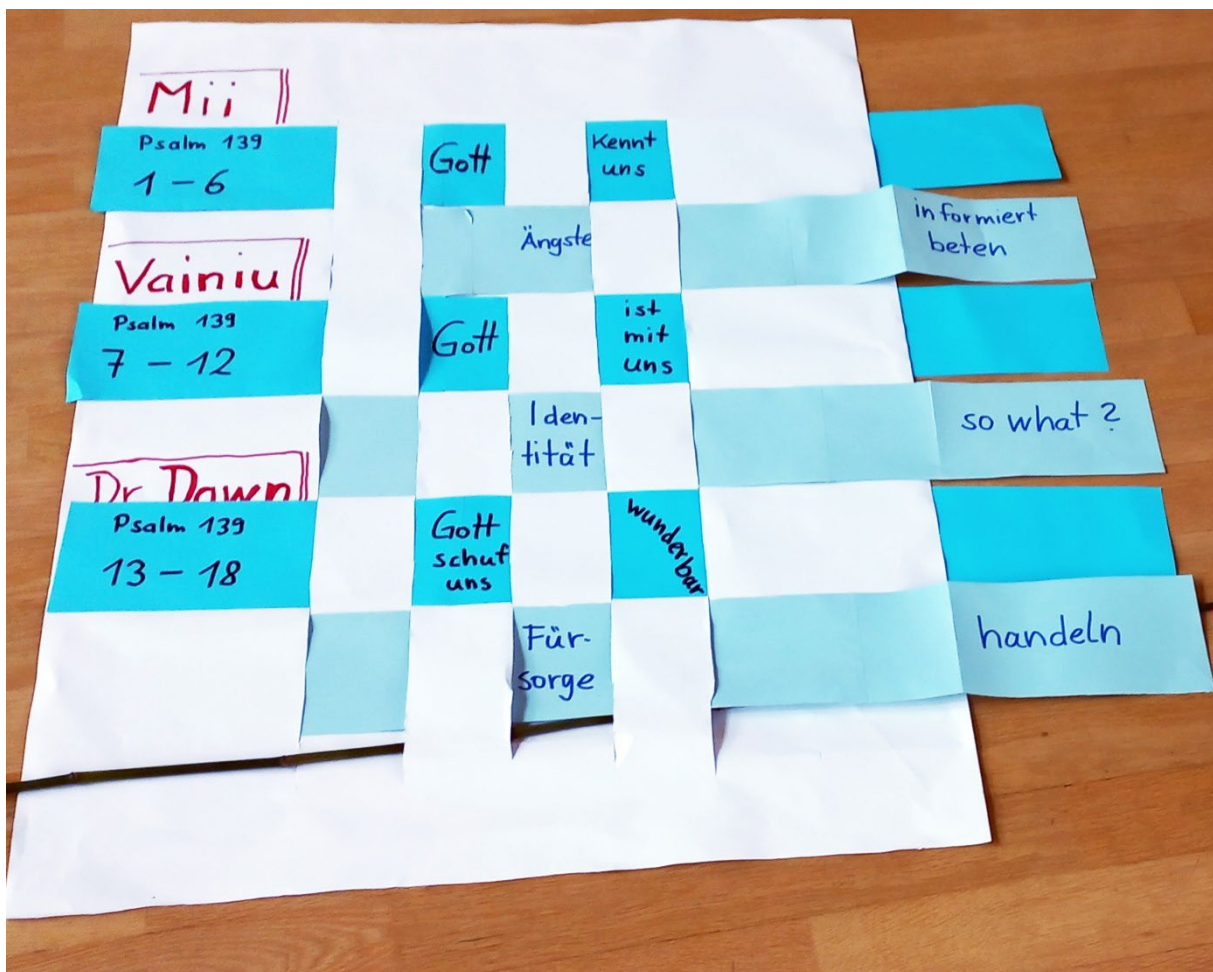 Mii
Psalm 139
1 – 6
Gott
Kennt
uns
Ängste
informiert
beten
Vainiu
Psalm 139
7 – 12
Gott
ist
mit
uns
Iden-
tität
so what?
Dr Dawn
Psalm 139
13 – 18
Gott
schuf
uns
wunderbar
Für-
sorge
handeln